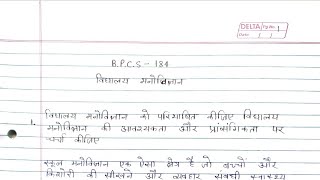 DELTA
B.P.C.S - 184
विद्यालय मनोविज्ञान
विद्यालय मनोविज्ञान को परिभाषित कीजिए विद्यालय
1. मनोविज्ञान की आवश्यकता और प्रांसंगिकता पर
चर्चा कीजिए
स्कूल मनोविज्ञान एक ऐसा क्षेत्र है जो बच्चों और
किशोरों की सीखने और व्यवहार संबंधी स्वास्थ्य